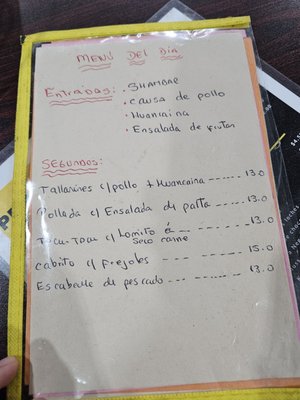 MENÚ DEL DIA
Entradas: · SHAMBAR
· CAUSA DE POLLO
· Huancaina
· Ensalada de frutas
SEGUNDOS:
Tallarines c/pollo + Huancaina ------ 13.0
Pollada c/ Ensalada de palta ---- 13.0
c/ Lomito ó ------- 13.0
Seco carne
Cabrito c/ Frejoles --- ------- 15.0
Escabeche de pescado --- ------ 13.0